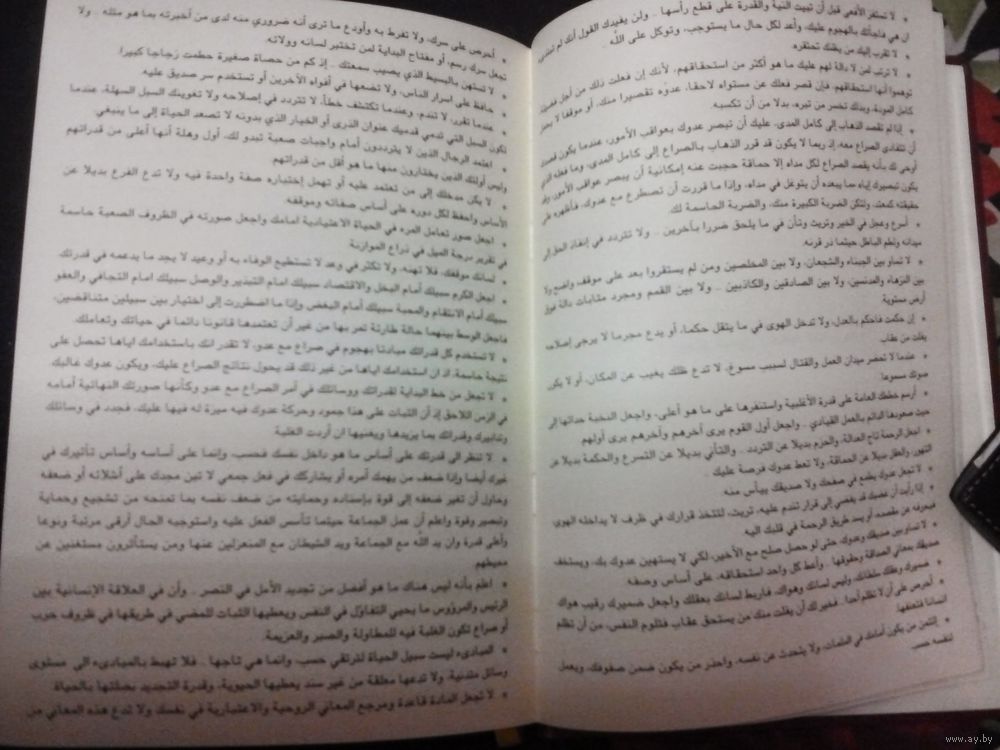 لا تستفز الأفعى قبل أن تبيت النية والقدرة على قطع رأسها .. ولن يفيدك القول أنك لم تبتدئ
ان هي فاجأتك بالهجوم عليك، وأعد لكل حال ما يستوجب، وتوكل على الله ..
لا تقرب إليك من يظنك تحتقره.
لا ترتب لمن لا دالة لهم عليك ما هو أكثر من استحقاقهم، لأنك إن فعلت ذلك من أجل
توهموا أنها استحقاقهم، فإن قصر فعلك عن مستواه لاحقا، عدّوه تقصيرا منك، أو موقفا لا
كامل المودة، وبذلك تخسر من تبره، بدلا من أن تكسبه.
إذا لم تقصد الذهاب إلى كامل المدى، عليك أن تبصر عدوك بعواقب الأمور، عندما يكون قصدك
أن تتفادى الصراع معه، إذ ربما لا يكون قد قرر الذهاب بالصراع إلى كامل المدى، وما فعله الذي
أوحى لك بأنه يقصد الصراع لكل مداه إلا حماقة حجبت عنه إمكانية أن يبصر عواقب الأمور
يكون تبصيرك إياه مما يبعده أن يتوغل في مداه، وإذا ما قررت أن تصطرع مع عدوك، فأظهره في
حقيقته كمعتد، ولتكن الضربة الكبيرة منك، والضربة الحاسمة لك.
أسرع وعجل في الخير وتريث وتأن في ما يلحق ضررا بآخرين .. ولا تتردد في إنفاذ الحق إلى
ميدانه ولطم الباطل حيثما ذر قرنه.
لا تساو بين الجبناء والشجعان، ولا بين المخلصين ومن لم يستقروا بعد على موقف واضح ولا
بين النزهاء والمدنسين، ولا بين الصادقين والكاذبين .. ولا بين القمم ومجرد مثابات دالة فوق
أرض مستوية.
إن حكمت فاحكم بالعدل، ولا تدخل الهوى في ما يثقل حكما، أو يدع مجرما لا يرجى إصلاحه
يفلت من عقاب.
عندما لا تحضر ميدان العمل والقتال لسبب مسوغ، لا تدع ظلك يغيب عن المكان، أو لا يكون
صوتك مسموعا.
أرسم خططك العامة على قدرة الأغلبية واستنفرها على ما هو أعلى، واجعل النخبة حداتها إلى
حيث صعودها الدائم بالعمل القيادي .. واجعل أول القوم يرى آخرهم وآخرهم يرى أولهم.
اجعل الرحمة تاج العدالة، والحزم بديلا عن التردد .. والتأني بديلا عن التسرع والحكمة بديلا عن
التهور، والعقل بديلا عن الحماقة، ولا تعط عدوك فرصة عليك ..
لا تجعل عدوك يطمع في صفحك ولا صديقك ييأس منه.
إذا رأيت أن غضبك قد يفضي إلى قرار تندم عليه، تريث، لتتخذ قرارك في ظرف لا يداخله الهوى
فيحرفه عن مقصده، أو يسد طريق الرحمة في قلبك اليه.
لا تساو بين صديقك وعدوك، حتى لو حصل صلح مع الأخير، لكي لا يستهين عدوك بك، ويستخف
صديقك بمعاني الصداقة وحقوقها .. وأعط كل واحد استحقاقه، على أساس وصفه.
ضميرك وعقلك سلطانك، وليس لسانك وهواك، فاربط لسانك بعقلك واجعل ضميرك رقيب هواك.
أحرص على أن لا تظلم أحدا .. فخير لك أن يفلت منك من يستحق عقاب فتلوم النفس، من أن تظلم
انسانا فتعنفها.
إئتمن من يكون أمامك في الملمات، ولا يتحدث عن نفسه، واحذر من يكون ضمن صفوفك، ويعمل
لنفسه حسب.
أحرص على سرك، ولا تفرط به وأودع ما ترى أنه ضروري منه لدى من أخبرته بما هو مثله .. ولا
تجعل سرك رسم، أو مفتاح البداية لمن تختبر لسانه وولاته.
لا تستهن بالبسيط الذي يصيب سمعتك .. إذ كم من حصاة صغيرة حطمت زجاجا كبيرا.
حافظ على اسرار الناس، ولا تضعها في أفواه الآخرين أو تستخدم سر صديق عليه.
عندما تقرر، لا تندم .. وعندما تكتشف خطأ، لا تتردد في إصلاحه ولا تغوينك السبل السهلة، عندما
تكون السبل التي تدمي قدميك عنوان الذرى أو الخيار الذي بدونه لا تصعد الحياة إلى ما ينبغي.
اعتمد الرجال الذين لا يترددون أمام واجبات صعبة تبدو لك، أول وهلة أنها أعلى من قدراتهم
وليس أولئك الذين يختارون منها ما هو أقل من قدراتهم.
لا يكن مدخلك إلى من تعتمد عليه أو تهمل إختباره صفة واحدة فيه ولا تدع الفرع بديلا عن
الأساس واحفظ لكل دوره على أساس صفاته وموقفه.
اجعل صور تعامل المرء في الحياة الاعتيادية امامك واجعل صورته في الظروف الصعبة حاسمة
في تقرير درجة الميل في ذراع الموازنة.
لسانك موقفك، فلا تهنه، ولا تكثر في وعد لا تستطيع الوفاء به أو وعيد لا يجد ما يدعمه في قدرتك.
اجعل الكرم سبيلك أمام البخل والاقتصاد سبيلك امام التبذير والوصل سبيلك امام التجافي والعفو
سبيلك أمام الانتقام والمحبة سبيلك أمام البغض وإذا ما اضطررت إلى اختيار بين سبيلين متناقضين،
فاجعل الوسط بينهما حالة طارئة تمر بها من غير أن تعتمدها قانونا دائما في حياتك وتعاملك.
لا تستخدم كل قدراتك مبادئا بهجوم في صراع مع عدو، لا تقدر انك باستخدامك اياها تحصل على
نتيجة حاسمة، اذ ان استخدامك اياها من غير ذلك قد يحول نتائج الصراع عليك، ويكون عدوك غالبك
لا تجعل من خط البداية لقدراتك ووسائلك في أمر الصراع مع عدو وكأنها صورتك النهائية أمامه
في الزمن اللاحق إذ أن الثبات على هذا جمود وحركة عدوك فيه ميزة له فيها عليك، فجدد في وسائلك
وتدابيرك وقدراتك بما يزيدها ويغنيها ان أردت الغلبة.
لا تنظر الى قدرتك على أساس ما هو داخل نفسك فحسب، وإنما على أساسه وأساس تأثيرك في
غيرك أيضا وإذا ضعف من يهمك أمره أو يشاركك في فعل جمعي لا تبن مجدك على أشلائه أو ضعفه
وحاول أن تغير ضعفه إلى قوة بإسناده وحمايته من ضعف نفسه بما تمنحه من تشجيع وحماية
وتبصير وقوة واعلم أن عمل الجماعة حيثما تأسس الفعل عليه واستوجبه الحال أرقى مرتبة ونوعا
وأعلى قدرة وان يد الله مع الجماعة ويد الشيطان مع المنعزلين عنها ومن يستأثرون مستغنين عن
محيطهم
اعلم بأنه ليس هناك ما هو أفضل من تجديد الأمل في النصر .. وأن في العلاقة الإنسانية بين
الرئيس والمرؤوس ما يحيي التفاؤل في النفس ويعطيها الثبات للمضي في طريقها في ظروف حرب
أو صراع تكون الغلبة فيه للمطاولة والصبر والعزيمة.
المبادىء ليست سبيل الحياة لترتقي حسب، وانما هي تاجها .. فلا تهبط بالمبادىء الى مستوى
وسائل متدنية، ولا تدعها معلقة من غير سند يعطيها الحيوية، وقدرة التجديد بصلتها بالحياة.
لا تجعل المادة قاعدة ومرجع المعاني الروحية والاعتبارية في نفسك ولا تدع هذه المعاني من
www.ay.by